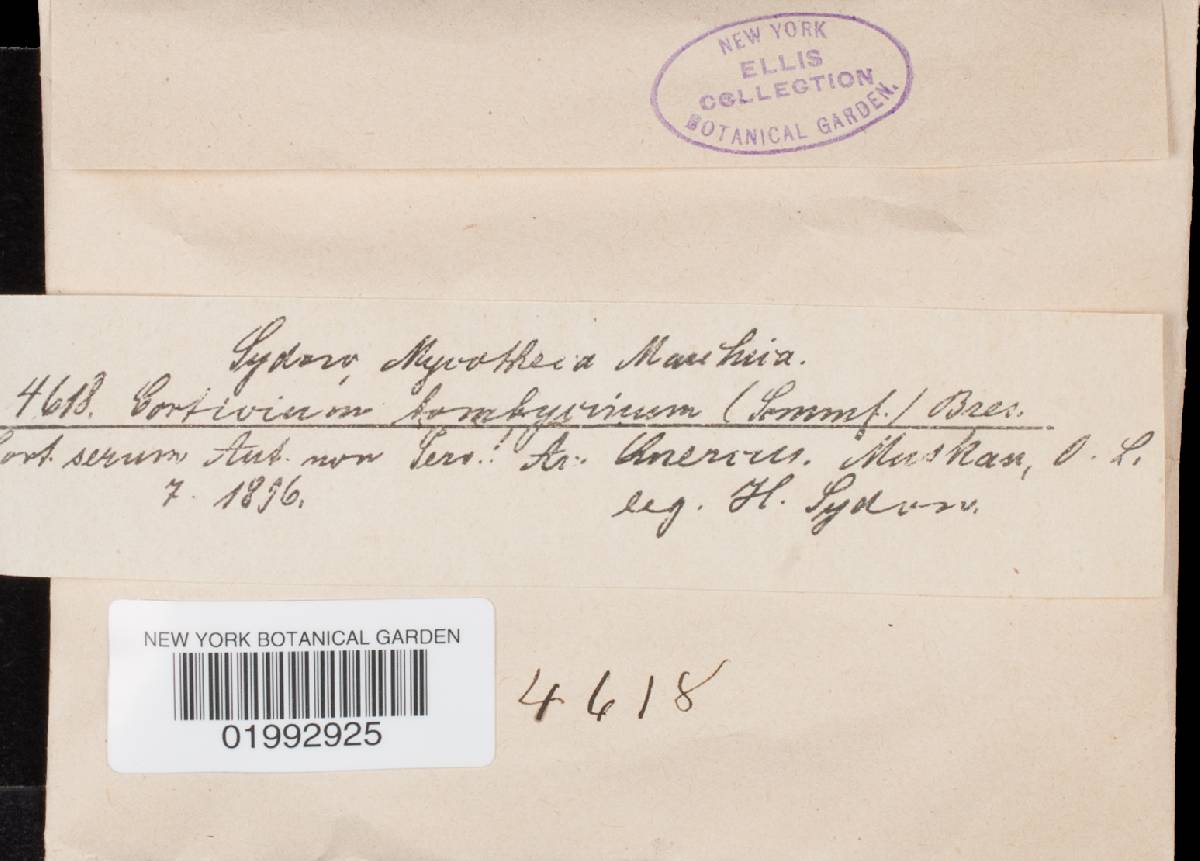 NEW YORK
ELLIS
COLLECTION
BOTANICAL GARDEN.
Sydow, Mycotheca Marchica.
4618. Corticium bombycinum (Sommf.) Bres.
Cort. serum Aut. non Pers.! Ar. Quercus. Muskau, O. L.
7. 1896. leg. H. Sydow.
NEW YORK BOTANICAL GARDEN
01992925
4618